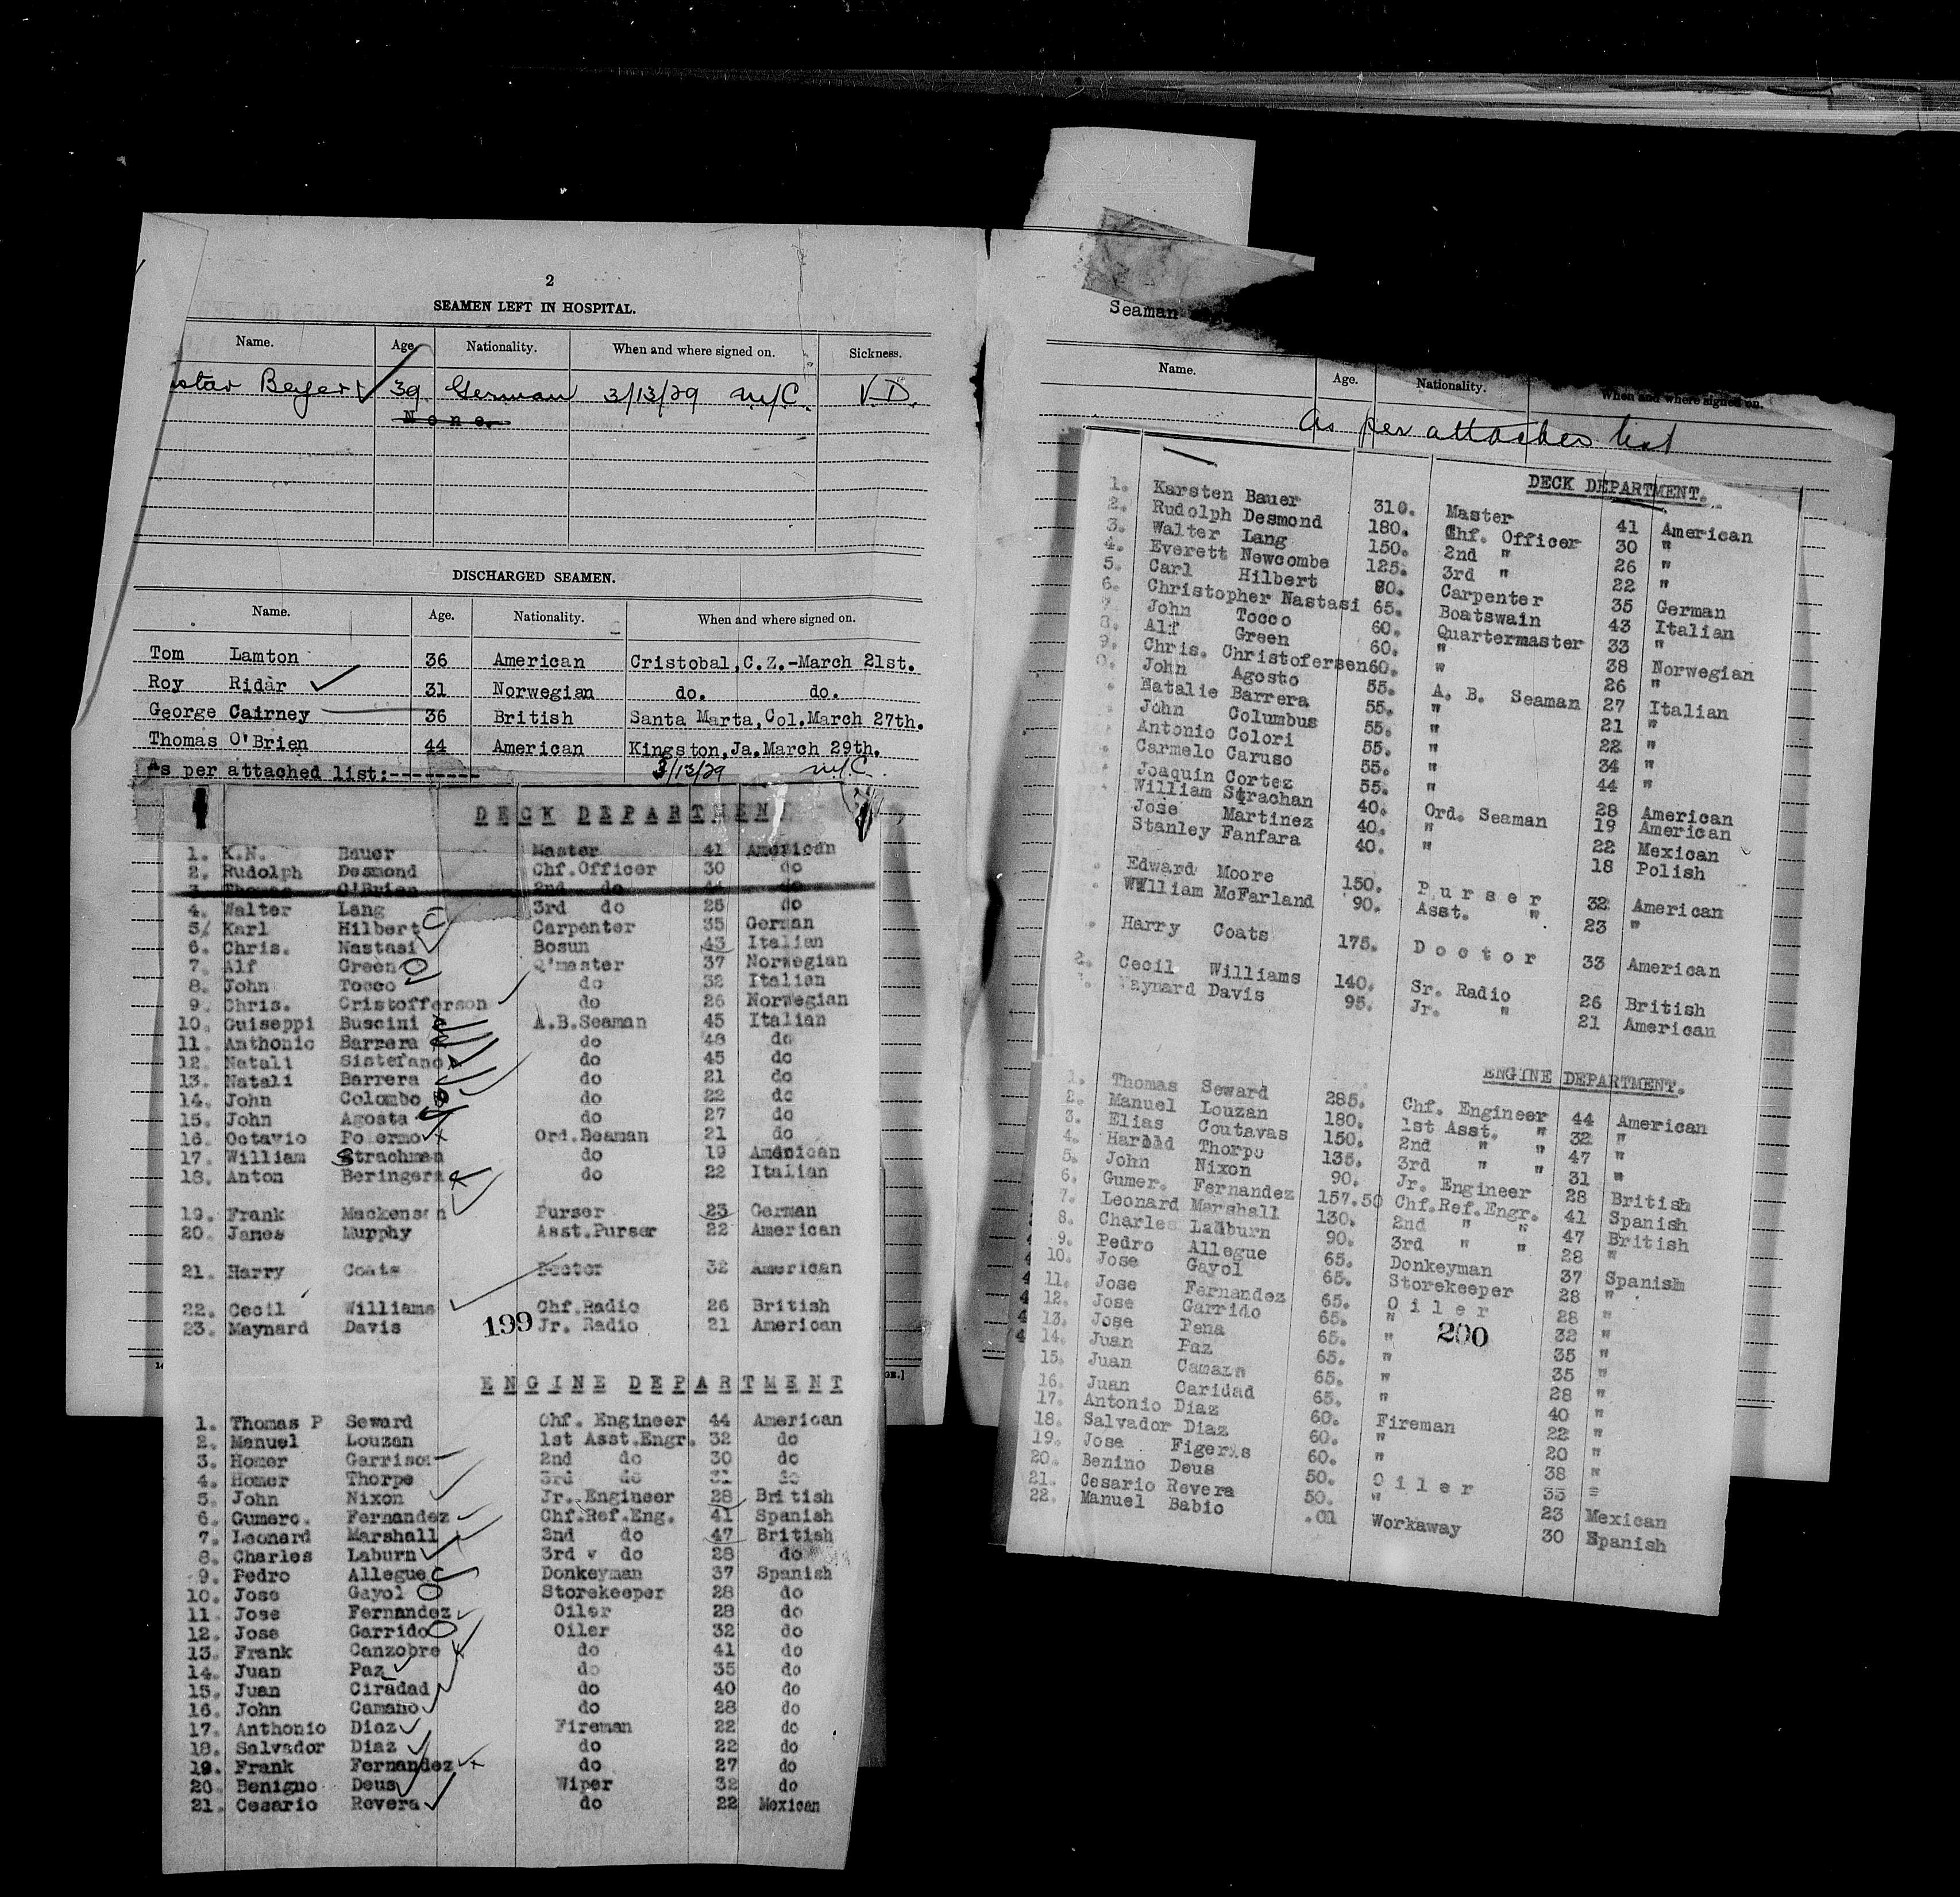 2
SEAMEN LEFT IN HOSPITAL.
Name. Age. Nationality. When and where signed on. Sickness.
Beyer 39 German 3/13/29 N/C. V.D.
None.
DISCHARGED SEAMEN.
Name. Age. Nationality. When and where signed on.
Tom Lamton 36 American Cristobal,C.Z.-March 21st.
Roy Ridar 31 Norwegian do. do.
George Cairney 36 British Santa Marta,Col.March 27th.
Thomas O'Brien 44 American Kingston,Ja.March 29th.
As per attached list:-------- 3/13/29 N/C.
DECK DEPARTMENT
1. K.N. Bauer Master 41 American
2. Rudolph Desmond Chf.Officer 30 do
3. Thomas O'Brien 2nd do 44 do
4. Walter Lang 3rd do 26 do
5. Karl Hilbert Carpenter 35 German
6. Chris. Nastasi Bosun 43 Italian
7. Alf Green Q'master 37 Norwegian
8. John Tocco do 32 Italian
9. Chris. Cristofferson do 26 Norwegian
10. Guiseppi Buscini A.B.Seaman 45 Italian
11. Anthonio Barrera do 48 do
12. Natali Sistefano do 45 do
13. Natali Barrera do 21 do
14. John Colombo do 22 do
15. John Agosta do 27 do
16. Octavio Polermo Ord.Seaman 21 do
17. William Strachman do 19 American
18. Anton Beringera do 22 Italian
19. Frank Mackensen Purser 23 German
20. James Murphy Asst.Purser 22 American
21. Harry Coats Doctor 32 American
22. Cecil Williams Chf.Radio 26 British
23. Maynard Davis 199 Jr. Radio 21 American
ENGINE DEPARTMENT
1. Thomas P Seward Chf. Engineer 44 American
2. Manuel Louzan 1st Asst.Engr. 32 do
3. Homer Garrison 2nd do 30 do
4. Homer Thorpe 3rd do 31 do
5. John Nixon Jr. Engineer 28 British
6. Gumerc. Fernandez Chf.Ref.Eng. 41 Spanish
7. Leonard Marshall 2nd do 47 British
8. Charles Laburn 3rd v do 28 do
9. Pedro Allegue Donkeyman 37 Spanish
10. Jose Gayol Storekeeper 28 do
11. Jose Fernandez Oiler 28 do
12. Jose Garrido Oiler 32 do
13. Frank Canzobre do 41 do
14. Juan Paz do 35 do
15. Juan Ciradad do 40 do
16. John Camano do 28 do
17. Anthonio Diaz Fireman 22 do
18. Salvador Diaz do 22 do
19. Frank Fernandez do 27 do
20. Benigno Deus Wiper 32 do
21. Cesario Revera do 22 Mexican
Seaman
Name. Age. Nationality. When and where signed on.
As per attached list
DECK DEPARTMENT.
1. Karsten Bauer 310. Master 41 American
2. Rudolph Desmond 180. Chf. Officer 30 "
3. Walter Lang 150. 2nd " 26 "
4. Everett Newcombe 125. 3rd " 22 "
5. Carl Hilbert 80. Carpenter 35 German
6. Christopher Nastasi 65. Boatswain 43 Italian
7. John Tocco 60. Quartermaster 33 "
8. Alf Green 60. " 38 Norwegian
9. Chris. Christofersen 60. " 26 "
0. John Agosto 55. A. B. Seaman 27 Italian
Natalie Barrera 55. " 21 "
John Columbus 55. " 22 "
Antonio Colori 55. " 34 "
Carmelo Caruso 55. " 44 "
Joaquin Cortez 55. 28 American
William Strachan 40. Ord. Seaman 19 American
Jose Martinez 40. " 22 Mexican
Stanley Fanfara 40. " 18 Polish
Edward Moore 150. Purser 32 American
William McFarland 90. Asst. " 23 "
Harry Coats 175. Doctor 33 American
2. Cecil Williams 140. Sr. Radio 26 British
Maynard Davis 95. Jr. " 21 American
ENGINE DEPARTMENT.
1. Thomas Seward 285. Chf. Engineer 44 American
2. Manuel Louzan 180. 1st Asst. " 32 "
3. Elias Coutavas 150. 2nd " " 47 "
4. Harold Thorpe 135. 3rd " " 31 "
5. John Nixon 90. Jr. Engineer 28 British
6. Gumer. Fernandez 157.50 Chf.Ref.Engr. 41 Spanish
7. Leonard Marshall 130. 2nd " " 47 British
8. Charles Laburn 90. 3rd " " 28 "
9. Pedro Allegue 65. Donkeyman 37 Spanish
10. Jose Gayol 65. Storekeeper 28 "
11. Jose Fernandez 65. Oiler 28 "
12. Jose Garrido 65. " 32 "
13. Jose Pena 65. " 200 35 "
14. Juan Paz 65. " 35 "
15. Juan Camano 65. " 28 "
16. Juan Caridad 65. " 40 "
17. Antonio Diaz 60. Fireman 22 "
18. Salvador Diaz 60. " 20 "
19. Jose Figeras 60. " 38 "
20. Benino Deus 50. Oiler 33 "
21. Cesario Revera 50. " 23 Mexican
22. Manuel Babio .01 Workaway 30 Spanish